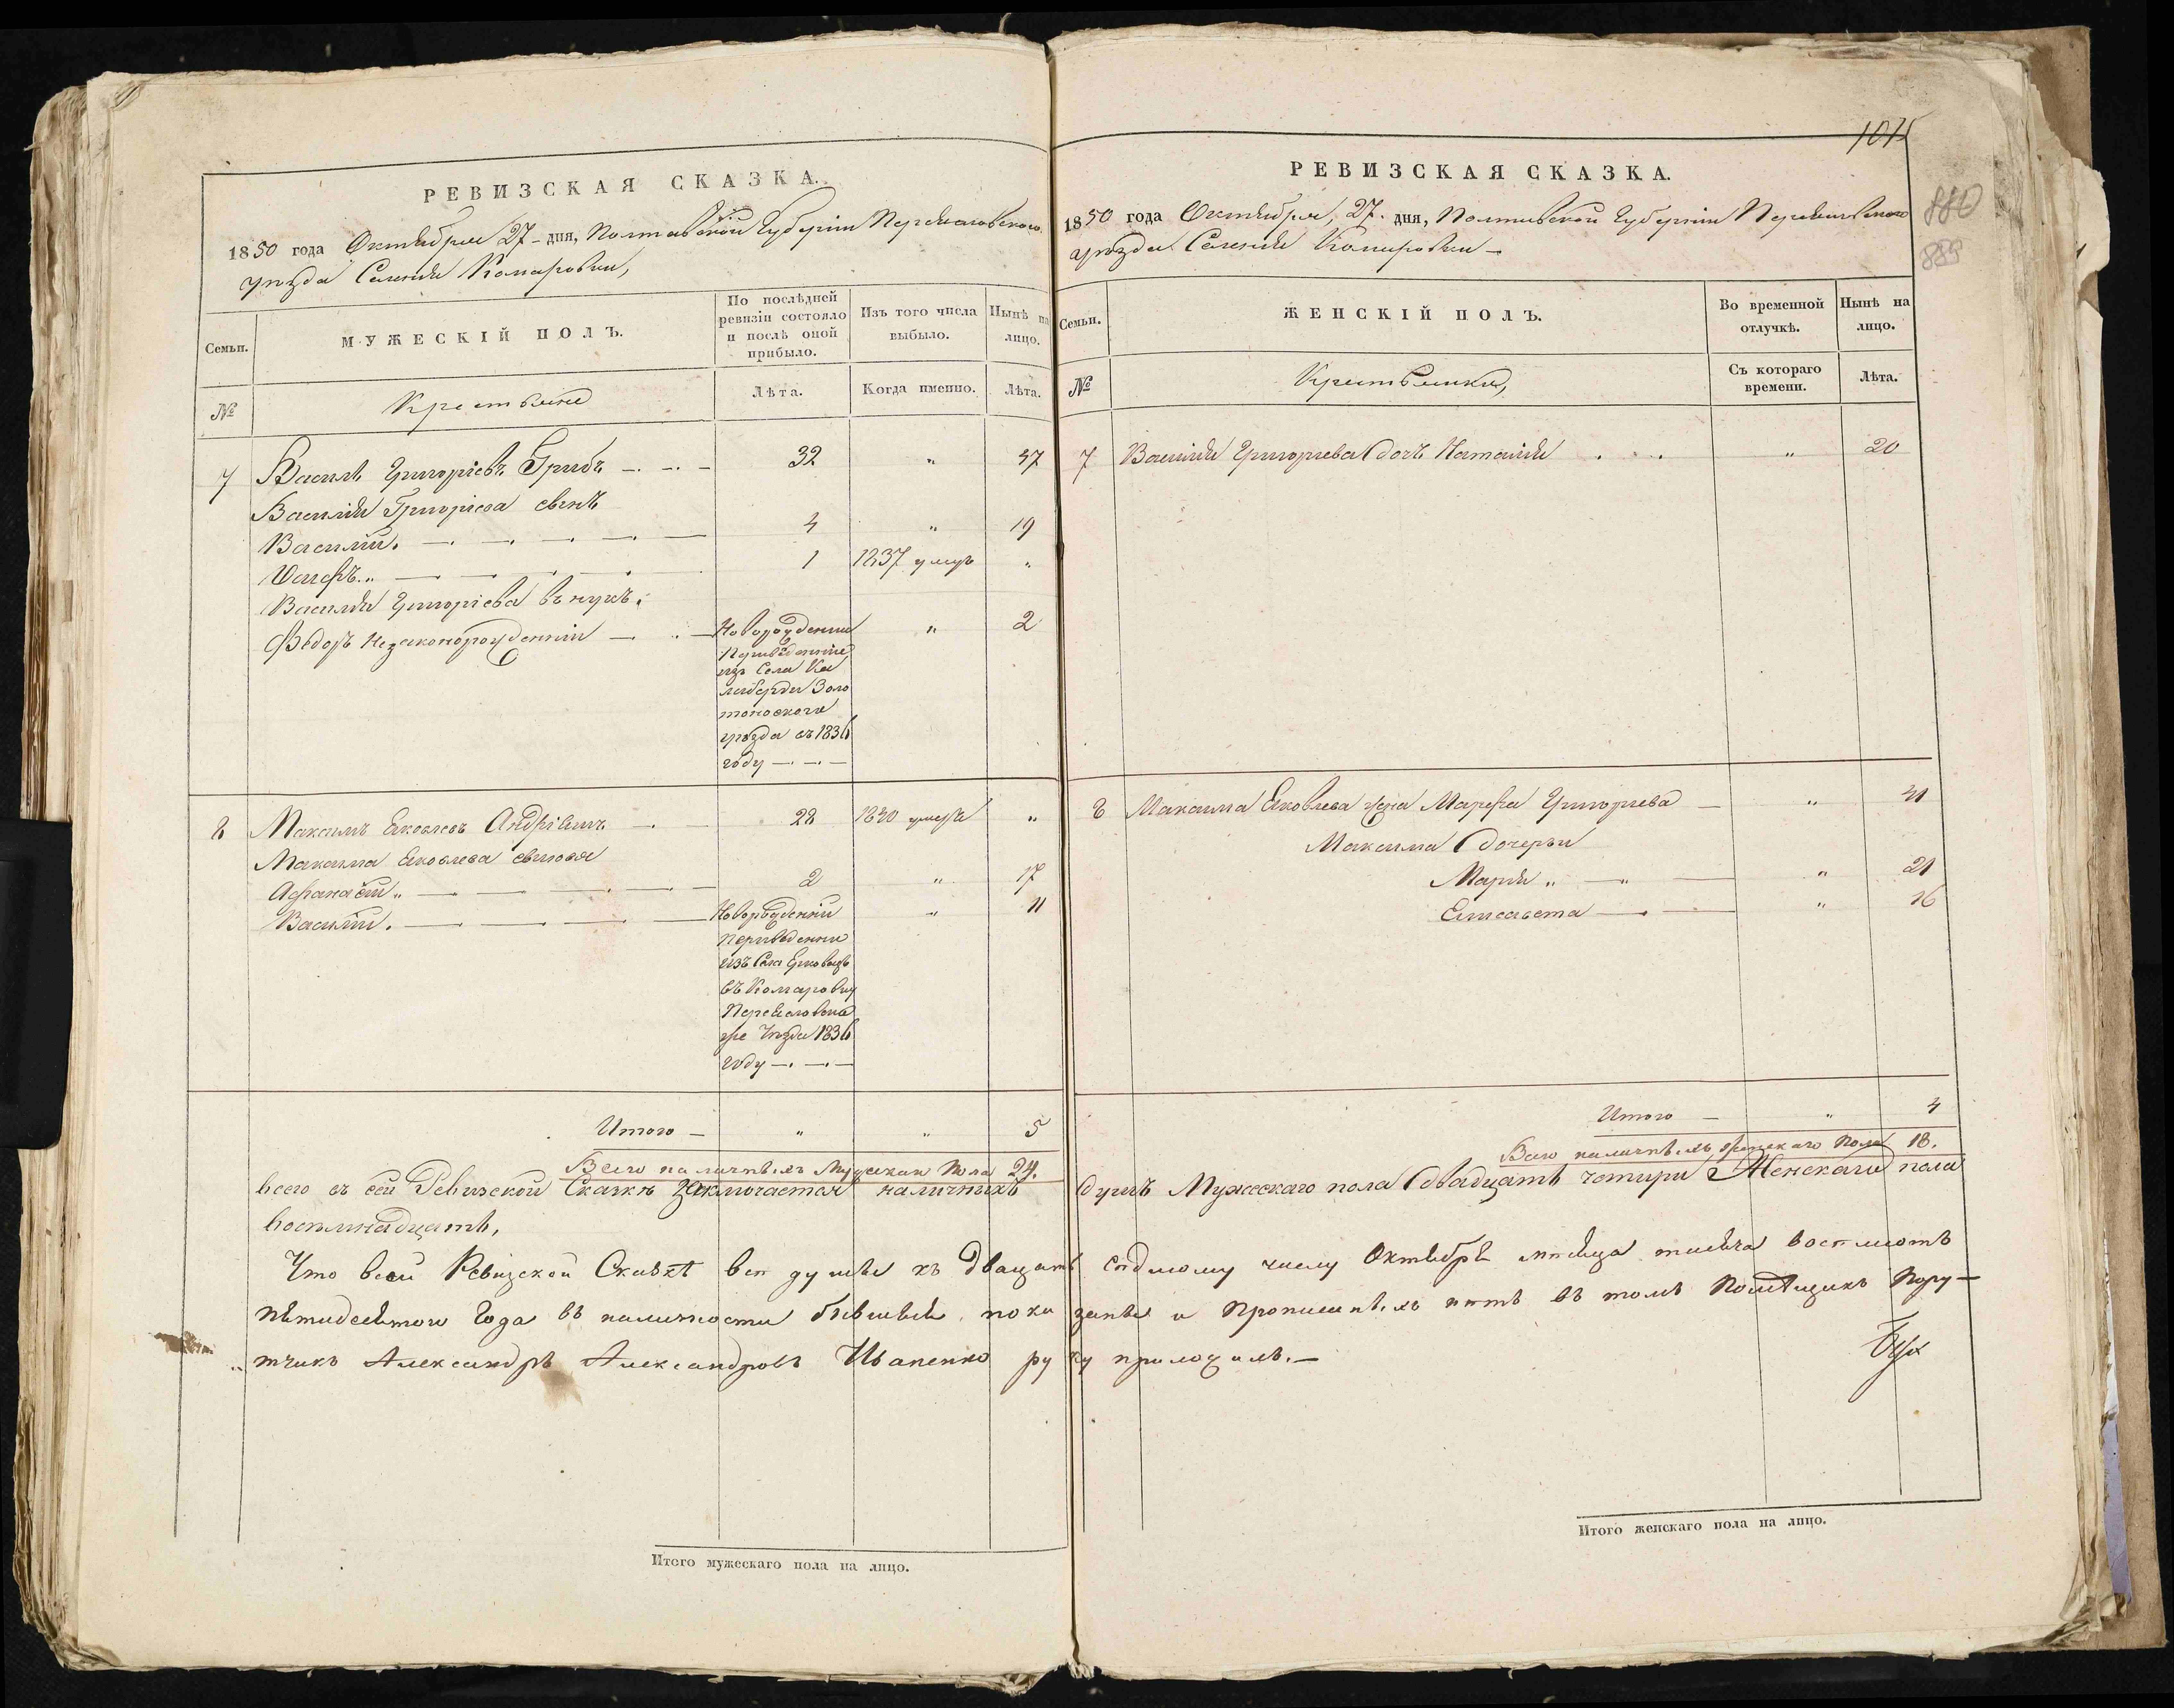 РЕВИЗСКАЯ СКАЗКА.
1850 года Октября 27 дня, Полтавской Губерніи Переяславского
уѣзда Селенія Комаровки,
Семьи.
МУЖЕСКІЙ ПОЛЪ.
По послѣдней ревизіи состояло и послѣ оной прибыло.
Изъ того числа выбыло.
Нынѣ на лицо.
№
Крестьяне
Лѣта.
Когда именно.
Лѣта.
7 Василь Григоріевъ Грибъ 32 " 47
Василія Григоріева сынъ
Василій. 4 " 19
Іосифъ. 1 1837 умеръ "
Василія Григоріева внукъ.
Ѳедоръ Незаконорожденній Новорожденни " 2
Переведенніе
изъ Села Ка
леберды Золо
тоноского
уѣзда въ 1836
году
8 Максимъ Яковлевъ Андріяшъ 28 1840 умеръ "
Максима Яковлева сыновья
Афанасій 2 " 17
Василій. Новорожденній " 11
Переведенни
изъ Села Ерковецъ
въ Комаровку
Переяславска
же Уѣзда 1836
году
Итого " " 5
Всего наличныхъ Мужеска Пола 24.
РЕВИЗСКАЯ СКАЗКА.
1015
880
889
1850 года Октября, 27. дня, Полтавской Губерніи Переяславского
уѣзда Селенія Комаровки
Семьи.
ЖЕНСКІЙ ПОЛЪ.
Во временной отлучкѣ.
Нынѣ на лицо.
№
Крестьянки,
Съ котораго времени.
Лѣта.
7 Василія Григорьева дочь Наталія " 20
8 Максима Яковлева жена Марфа Григорьева " 41
Максима дочери
Марія " " 21
Елисавета " 16
Итого " 4
Всего наличныхъ женскаго Пола 18.
всего въ сей Ревизской Сказкѣ заключается наличныхъ душъ Мужескаго пола двадцать четыри Женскаго пола
восемнадцать,
Что всей Ревизской Сказкѣ все души къ двацать седмому числу Октября мѣсяца тисяча восемсотъ
пятидесятого Года въ наличности бывшыя показаны и Прописныхъ нѣтъ въ томъ Помѣщикъ Пору-
тчикъ Александръ Александровъ Иваненко руку приложилъ.
Итого мужескаго пола на лицо.
Итого женскаго пола на лицо.